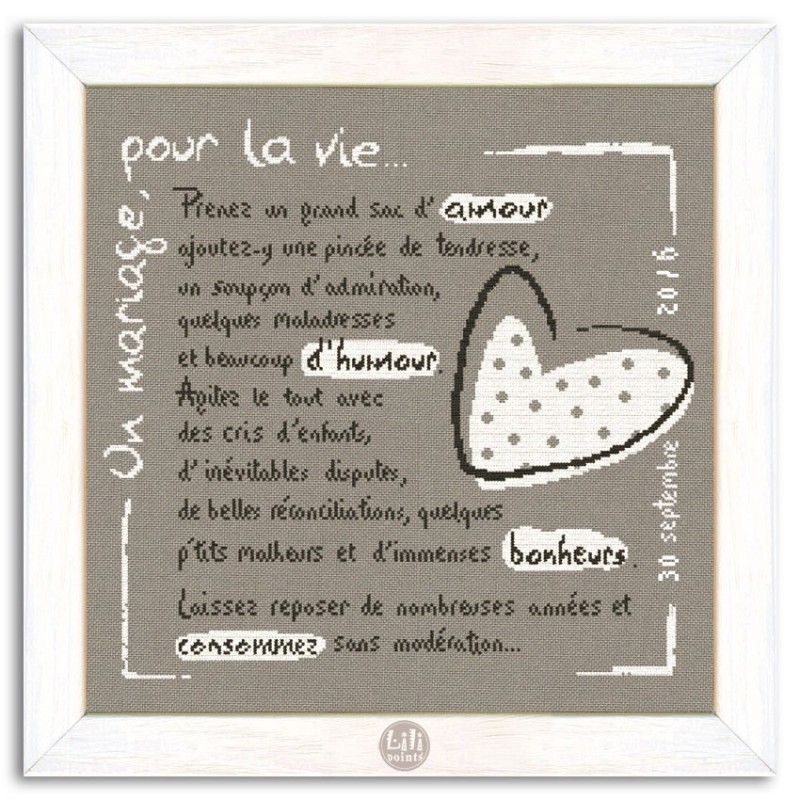 Un mariage, pour la vie...
Prenez un grand sac d'amour
ajoutez-y une pincée de tendresse,
un soupçon d'admiration,
quelques maladresses
et beaucoup d'humour.
Agitez le tout avec
des cris d'enfants,
d'inévitables disputes,
de belles réconciliations, quelques
p'tits malheurs et d'immenses bonheurs.
Laissez reposer de nombreuses années et
consommez sans modération...
30 septembre 2016
Lili
points